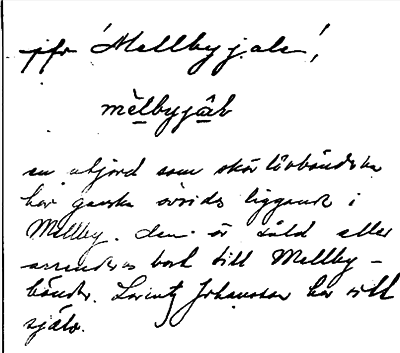 jfr 'Mellbyjala',
mèlbyjâk
en utjord som
har ganska avsides liggande i
Mellby. den är såld eller
arrenderas bort till Mellby-
bönder. Lorentz Johansson har sitt
själv.